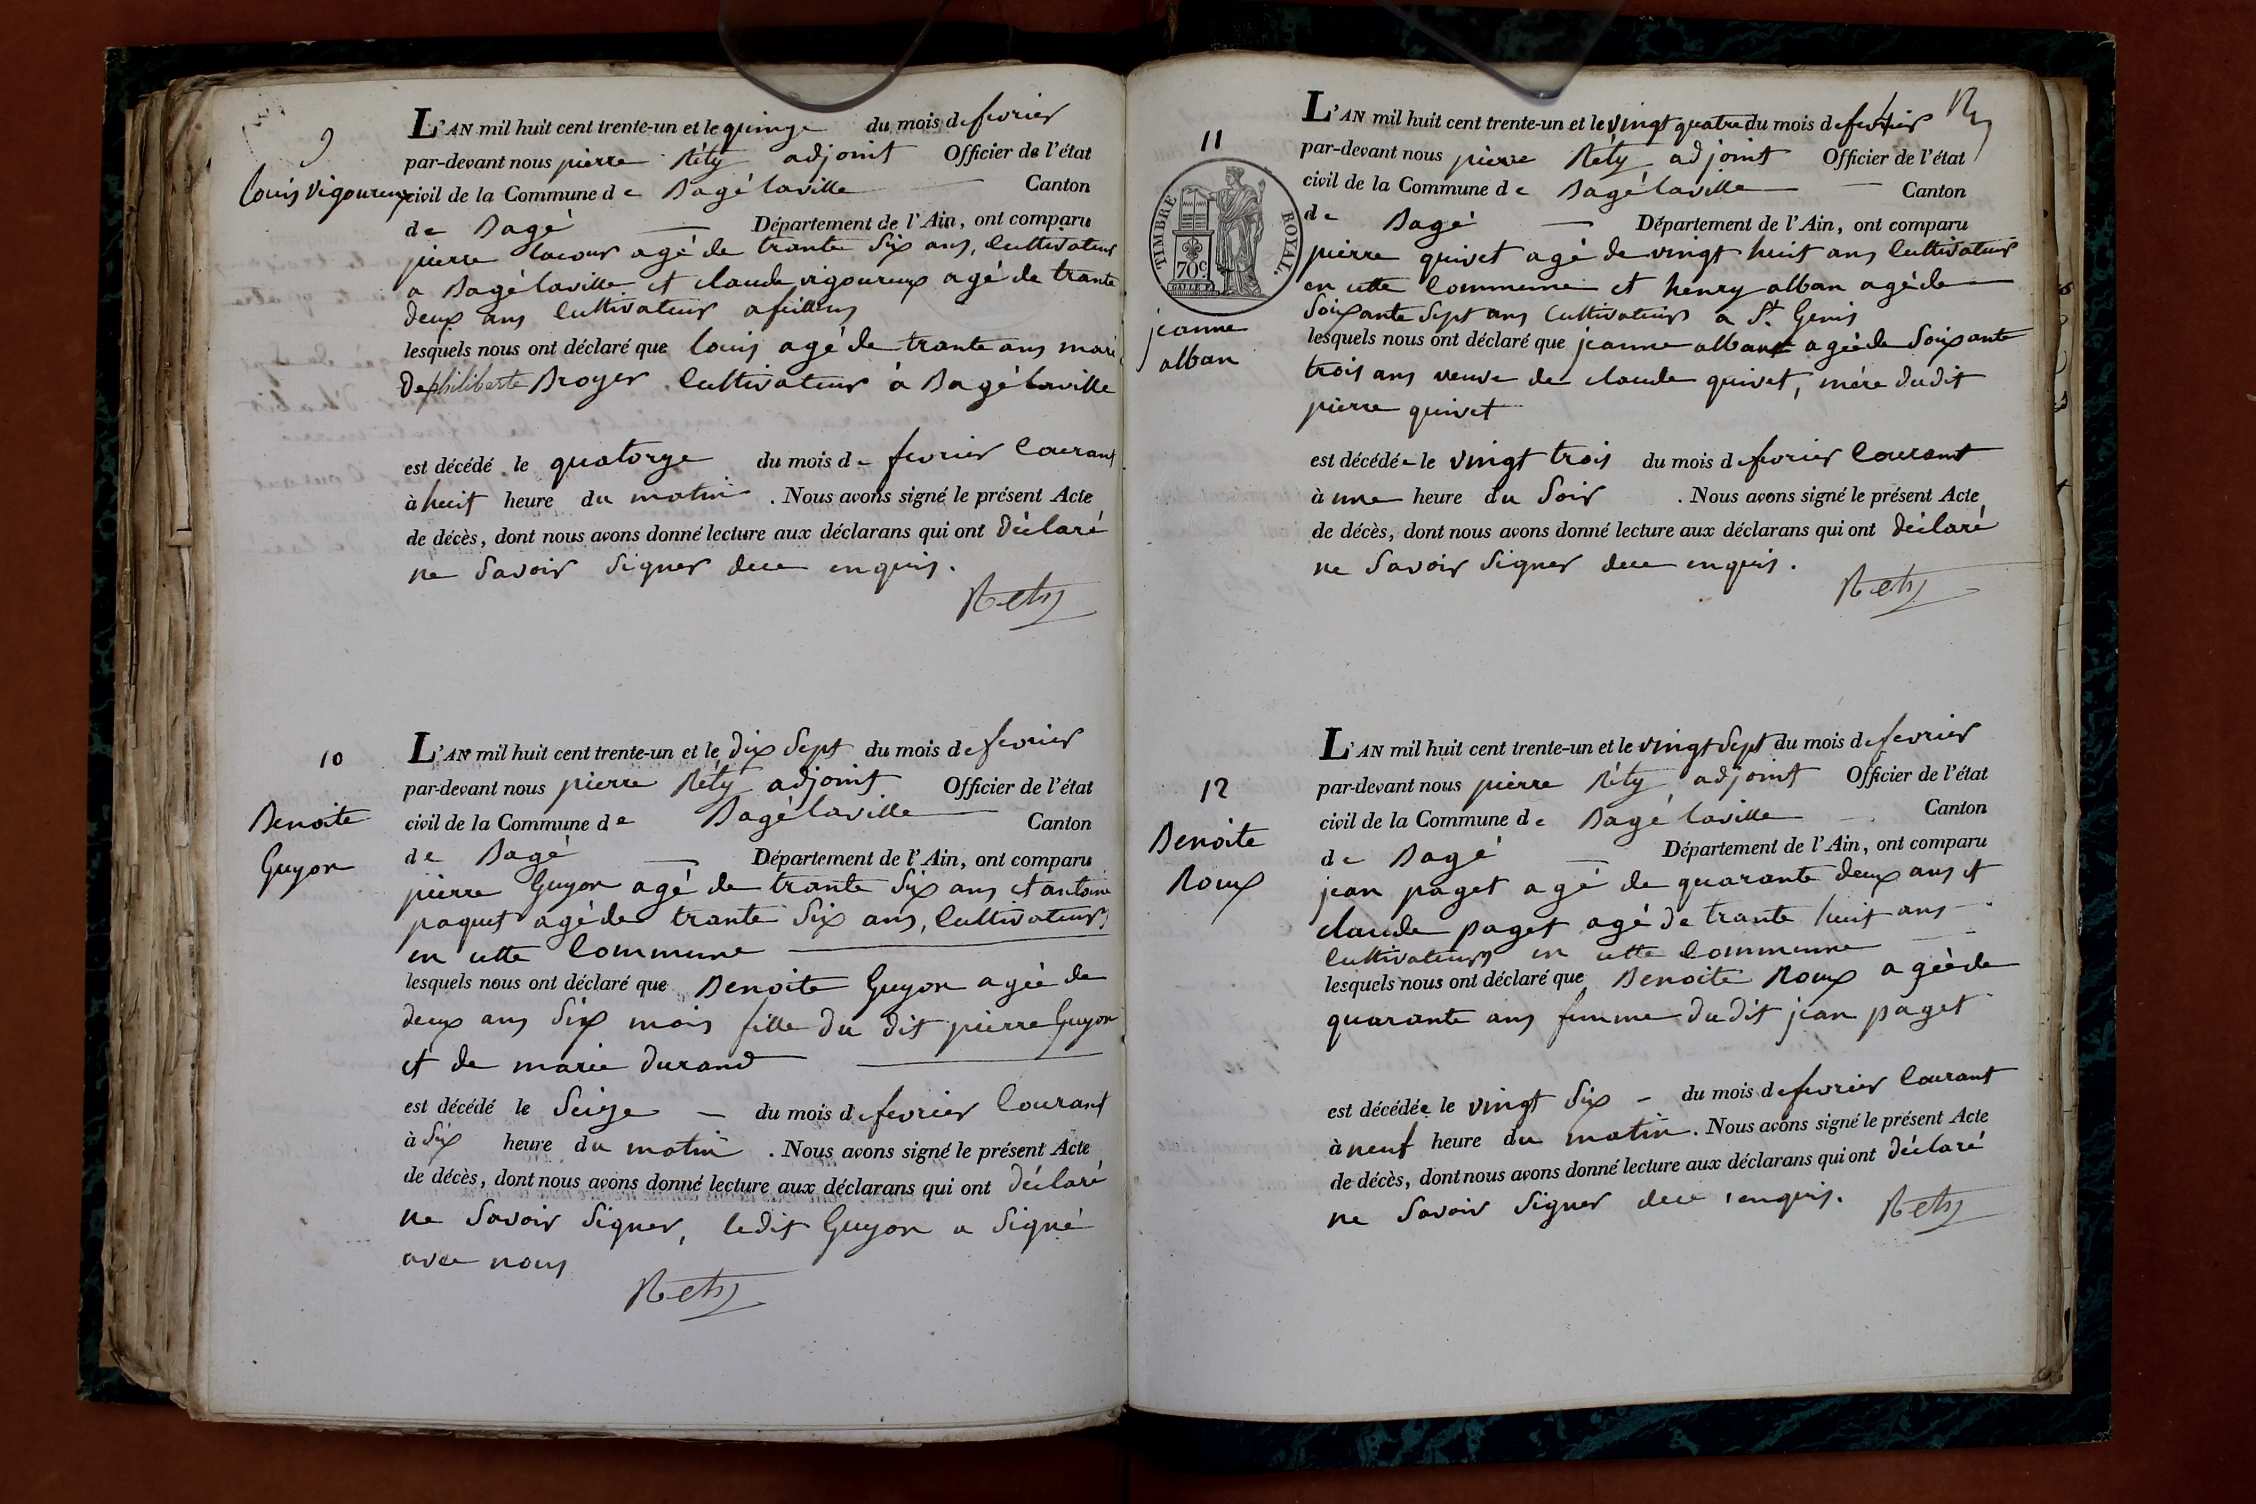 9
Louis Vigoureux
L'AN mil huit cent trente-un et le quinze du mois de fevrier
par-devant nous pierre Réty adjoint Officier de l'état
civil de la Commune de Bagé laville Canton
de Bagé Département de l'Ain, ont comparu
pierre lacour agé de trante Six ans, Cultivateur
a Bagé laville et claude vigoureux agé de trante
deux ans Cultivateur a feillens
lesquels nous ont déclaré que louis agé de trante ans mari
De philiberte Broyer Cultivateur à Bagé laville
est décédé le quatorze du mois de fevrier Courant
à huit heure du matin . Nous avons signé le présent Acte
de décès, dont nous avons donné lecture aux déclarans qui ont déclaré
ne Savoir Signer dece enquis.
Rety
10
Benoite
Guyon
L'AN mil huit cent trente-un et le dix Sept du mois de fevrier
par-devant nous pierre Réty adjoint Officier de l'état
civil de la Commune de Bagé laville Canton
de Bagé Département de l'Ain, ont comparu
pierre Guyon agé de trante Six ans et antoine
paquet agé de trante Six ans, Cultivateurs
en cette Commune
lesquels nous ont déclaré que Benoite Guyon agée de
deux ans Six mois fille du dit pierre Guyon
et de marie durand
est décédé le Seize du mois de fevrier Courant
à Six heure du matin . Nous avons signé le présent Acte
de décès, dont nous avons donné lecture aux déclarans qui ont déclaré
ne Savoir Signer, ledit Guyon a Signé
avec nous
Rety
11
TIMBRE ROYAL.
70c
jeanne
alban
L'AN mil huit cent trente-un et le vingt quatre du mois de fevrier
par-devant nous pierre Réty adjoint Officier de l'état
civil de la Commune de Bagé laville Canton
de Bagé Département de l'Ain, ont comparu
pierre quivet agé de vingt huit ans Cultivateur
en cette Commune et henry alban agé de
Soixante Sept ans Cultivateurs a St. Genis
lesquels nous ont déclaré que jeanne alban agée de Soixante
trois ans veuve de claude quivet, mére dudit
pierre quivet
est décédée le vingt trois du mois de fevrier Courant
à une heure du Soir . Nous avons signé le présent Acte
de décès, dont nous avons donné lecture aux déclarans qui ont déclaré
ne Savoir Signer dece enquis.
Rety
12
Benoite
Roux
L'AN mil huit cent trente-un et le vingt Sept du mois de fevrier
par-devant nous pierre Réty adjoint Officier de l'état
civil de la Commune de Bagé laville Canton
de Bagé Département de l'Ain, ont comparu
jean paget agé de quarante deux ans et
claude paget agé de trante huit ans
Cultivateurs en cette Commune
lesquels nous ont déclaré que Benoite Roux agée de
quarante ans femme dudit jean paget
est décédée le vingt Six du mois de fevrier Courant
à neuf heure du matin . Nous avons signé le présent Acte
de décès, dont nous avons donné lecture aux déclarans qui ont déclaré
ne Savoir Signer dece enquis.
Rety